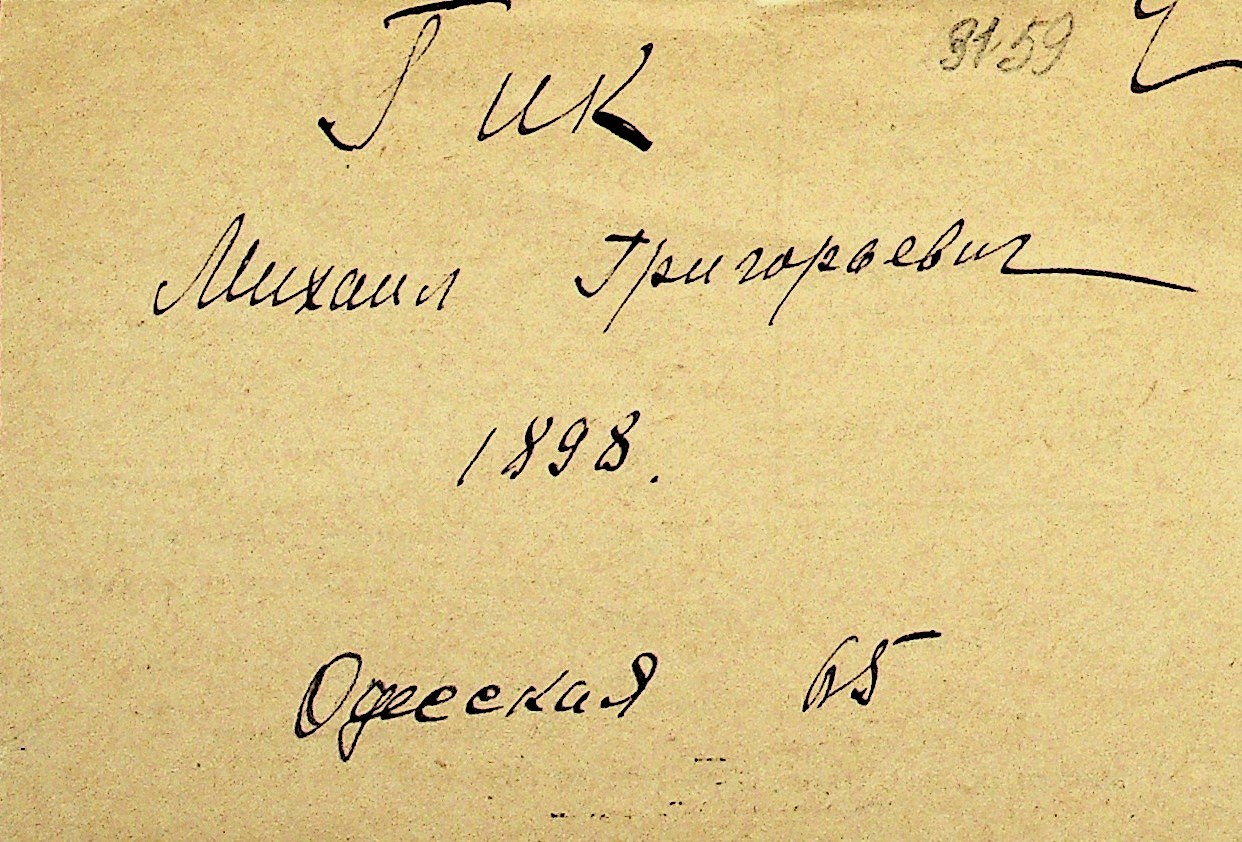 Гик 3159
Михаил Григорьевич
1898.
Одесская 65